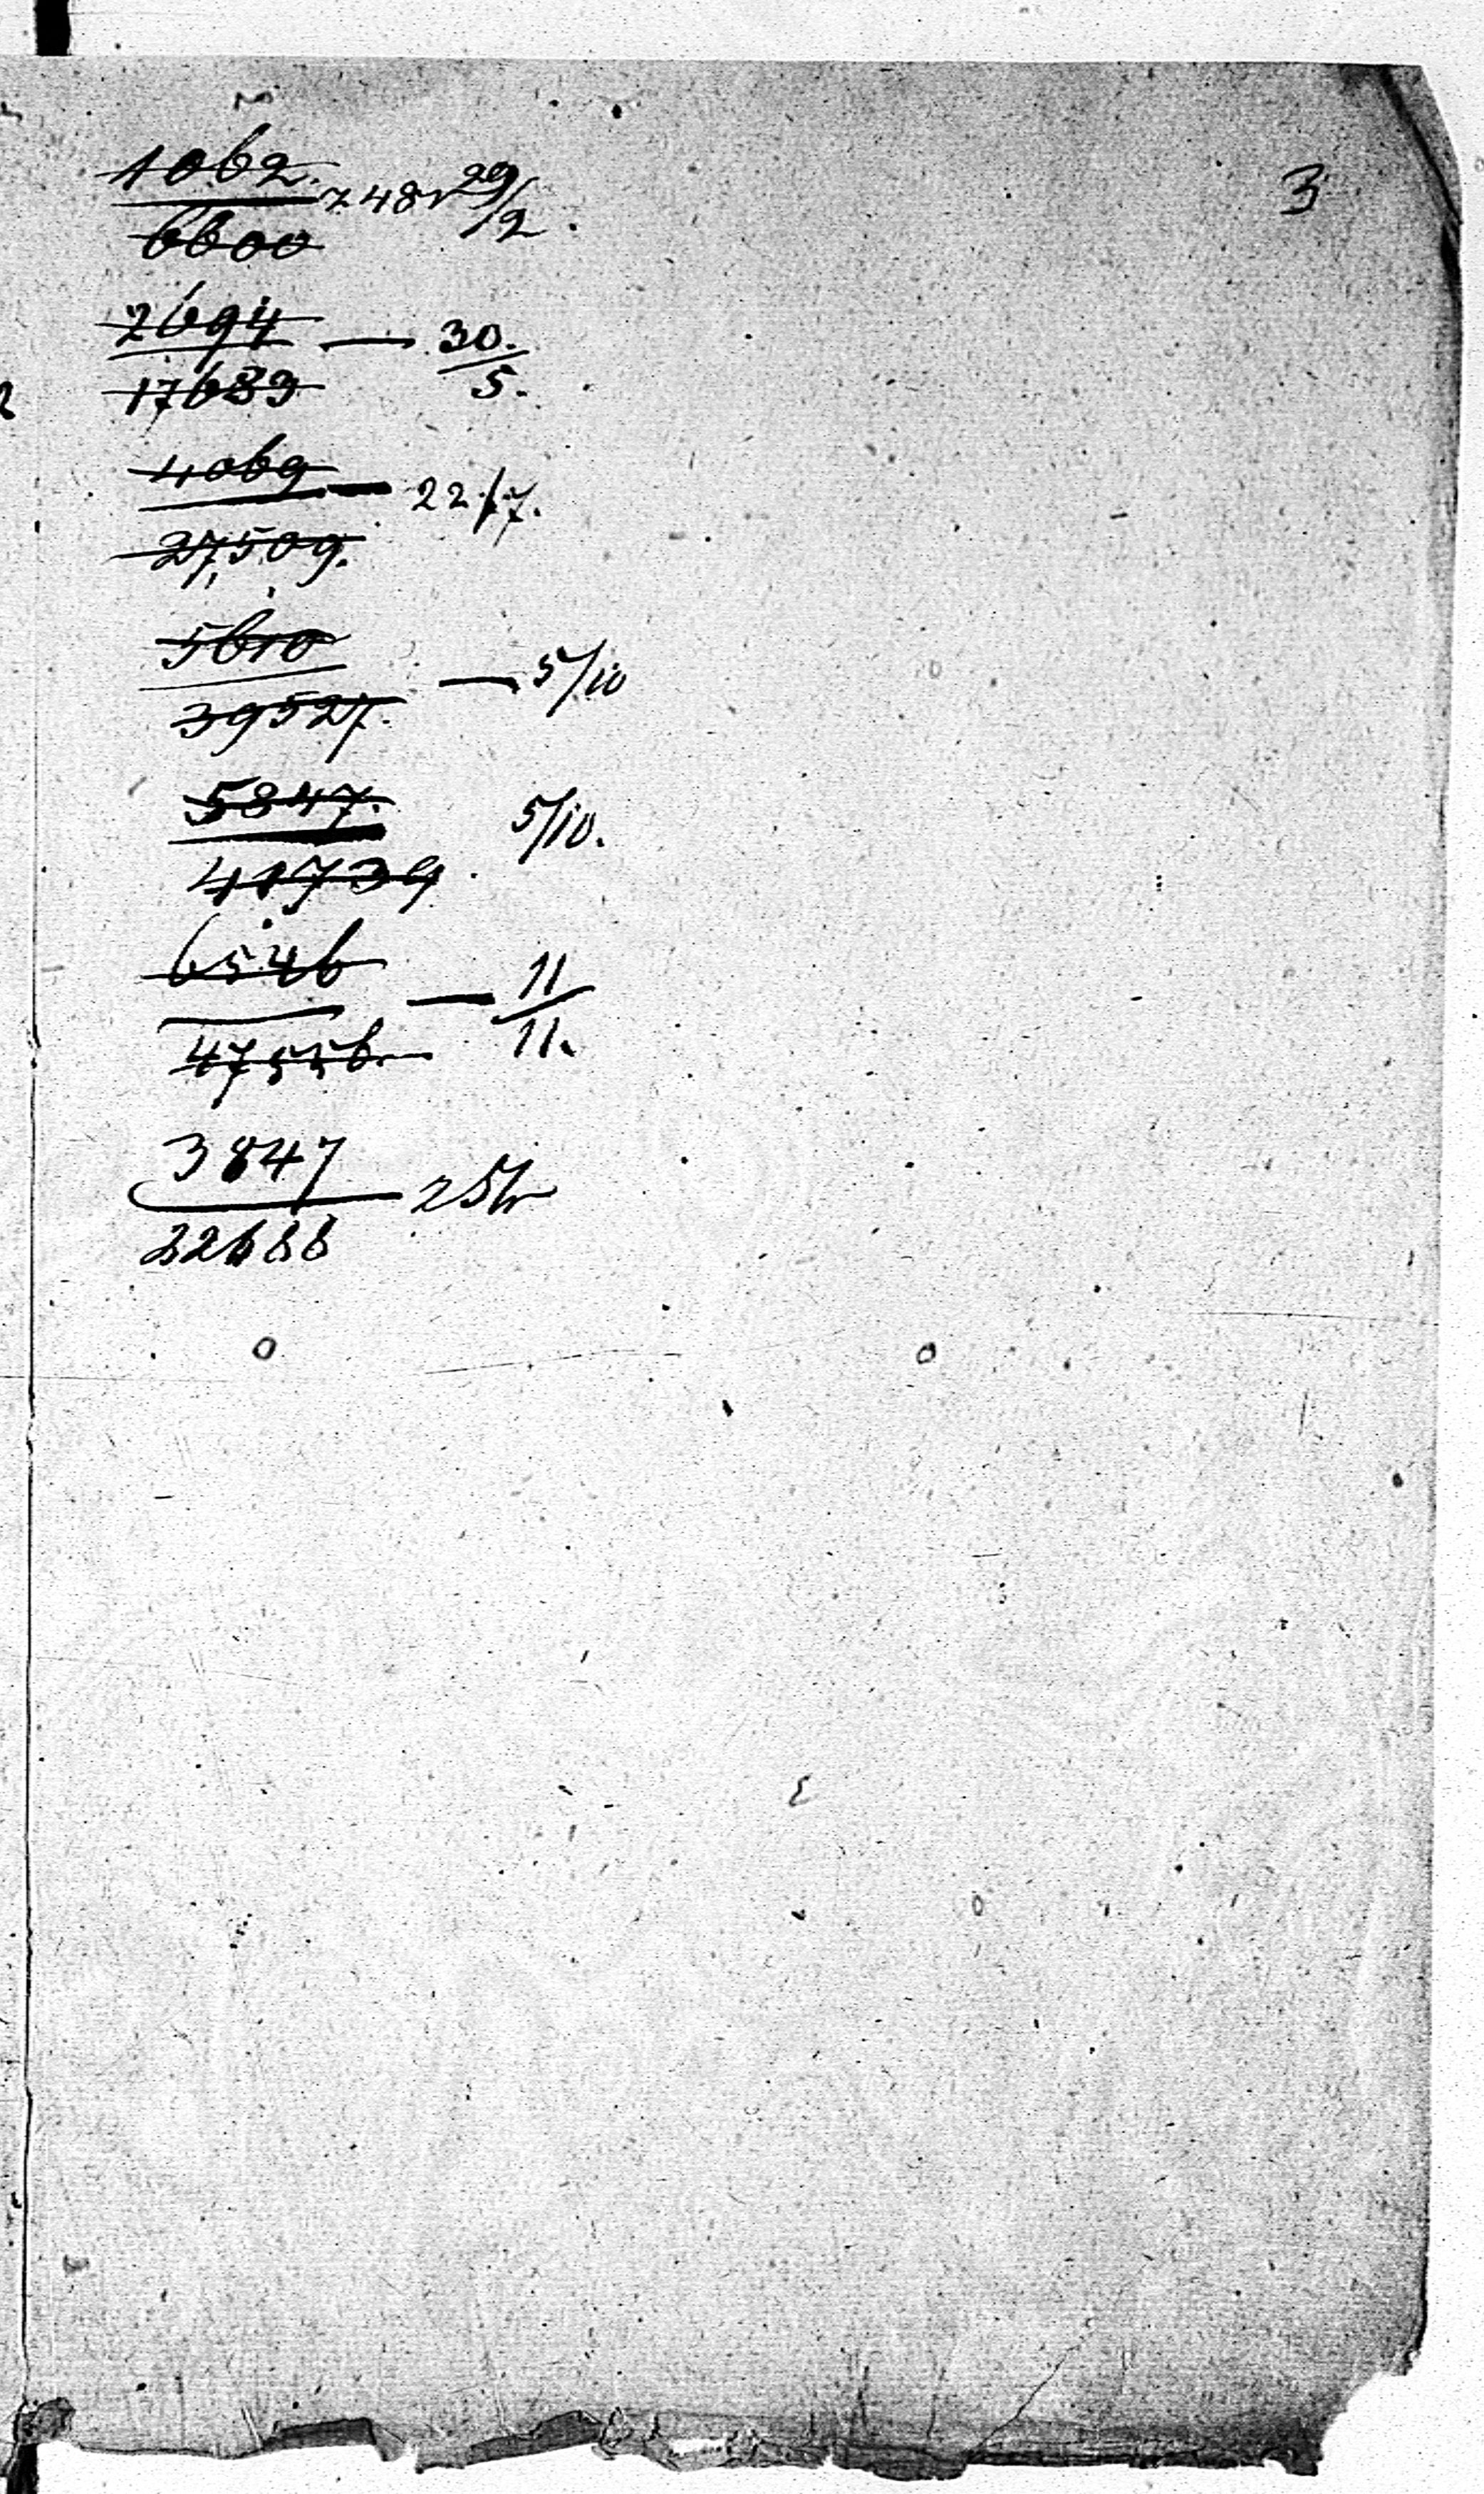 3
1062. z 48 r 29/2.
6600
2694 — 30./5.
17689
4069 — 22./7.
27,509.
5610 — 5/10
39527.
5847. 5/10.
41739.
6546 — 11/11.
47556.
3847
22688